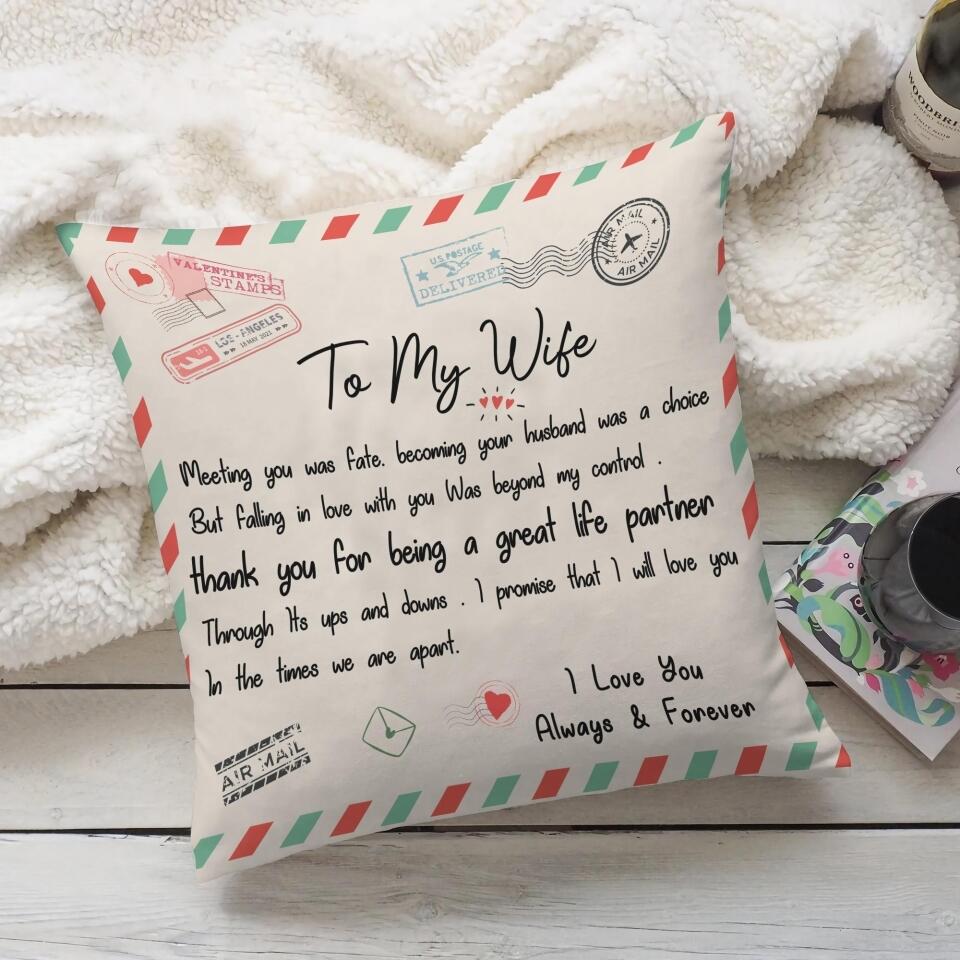 VALENTINE'S
STAMPS
LOS-ANGELES
18 MAY 2021
U.S. POSTAGE
DELIVERED
AIR MAIL
AIR MAIL
To My Wife
Meeting you was fate. becoming your husband was a choice
But falling in love with you Was beyond my control .
thank you for being a great life partner
Through Its ups and downs . I promise that I will love you
In the times we are apart.
I Love You
Always & Forever
AIR MAIL